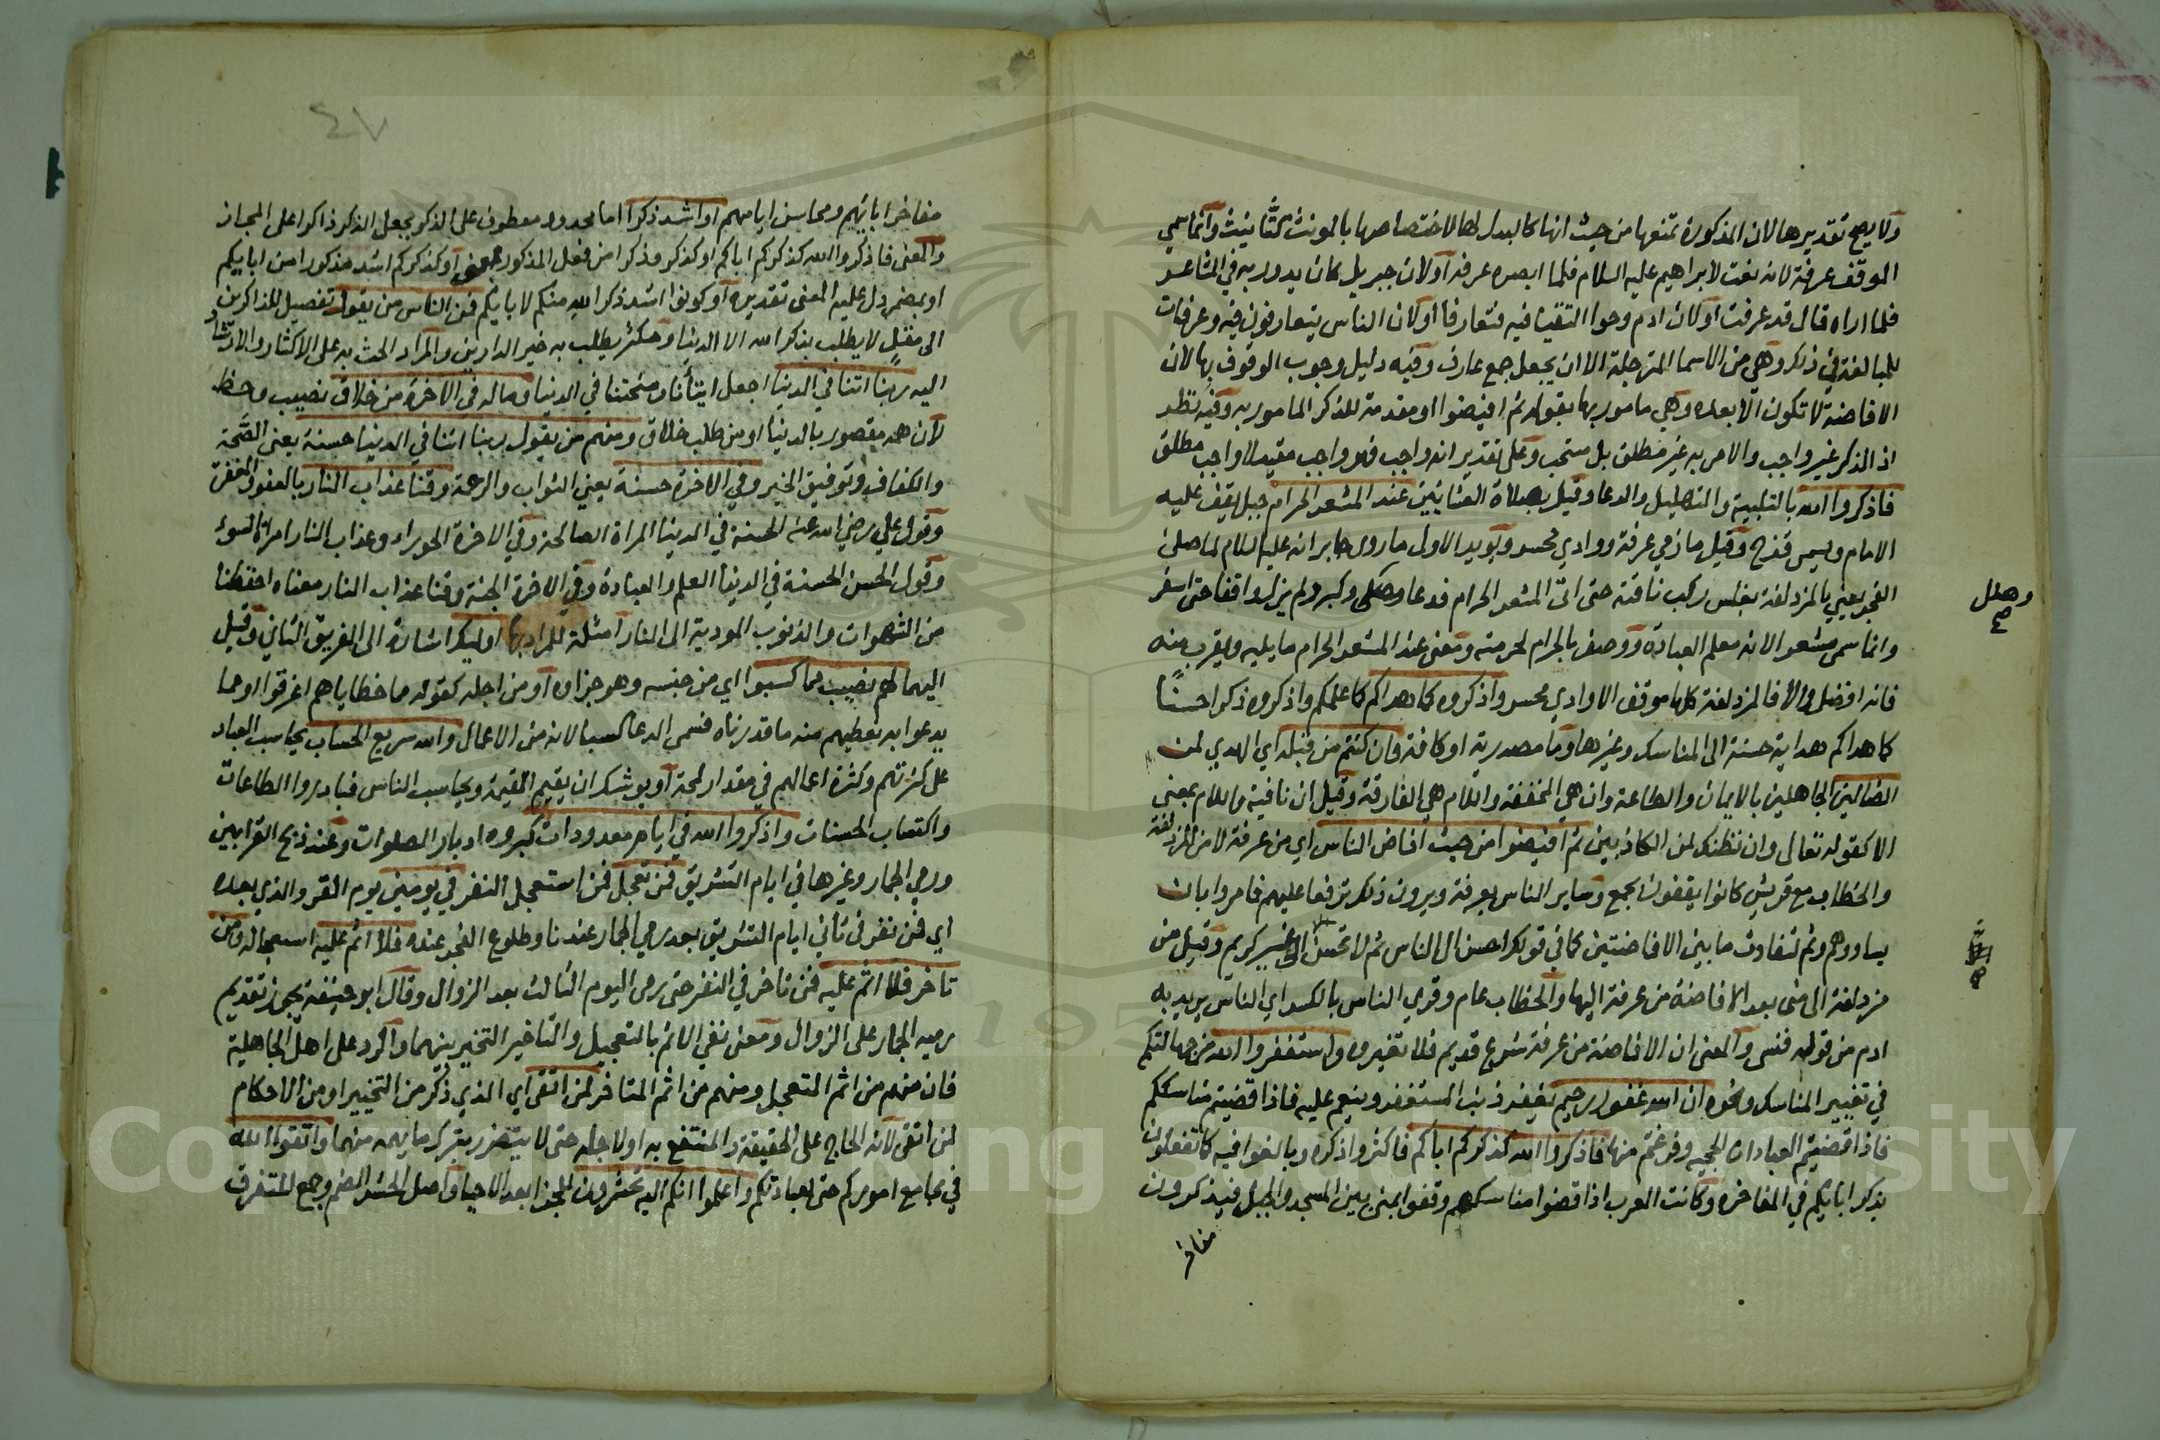 ولا يصح تقديرها لان المذكورة تمنعها من حيث انها كالبدل لها لاختصاصها بالمونث كتا بنت وانما سمي
الموقف عرفة لانه نعت لابراهيم عليه السلام فلما ابصره عرفه او لان جبريل كان يدور به في المشاعر
فلما اراه قال قد عرفت او لان ادم وحوا التقيا فيه فتعارفا او لان الناس يتعارفون فيه وعرفات
للمبالغة في ذلك وهي من الاسما المرتجلة الا ان يجعل جمع عارف وفيه دليل وجوب الوقوف بها لان
الافاضة لا تكون الا بعده وهي مامور بها بقوله ثم افيضوا او مقدمة للذكر المامور به وفيه نظر
اذ الذكر غير واجب والامر به غير مطلق بل مستحب وعلى تقدير انه واجب فهو واجب مقيد لا واجب مطلق
فاذكروا الله بالتلبية والتهليل والدعا وقيل بصلاة العشائين عند المشعر الحرام جبل يقف عليه
الامام ويسمى قزح وقيل مازمي عرفة ووادي محسر ويويد الاول ما روى جابر انه عليه السلام لما صلى
الفجر يعني بالمزدلفة بغلس ركب ناقته حتى اتى المشعر الحرام فدعا وكبر ولم يزل واقفا حتى اسفر
وهلل
صح
وانما سمي مشعرا لانه معلم العبادة ووصف بالحرام لحرمته ومعنى عند المشعر الحرام ما يليه ويقرب منه
فانه افضل والا فالمزدلفة كلها موقف الا وادي محسر واذكروه كما هداكم كما علمكم واذكروه ذكرا حسنًا
كما هداكم هداية حسنة الى المناسك وغيرها وما مصدرية او كافة وان كنتم من قبله اي الهدي لمن
الضالين الجاهلين بالايمان والطاعة وان هي المخففة واللام هي الفارقة وقيل ان نافية واللام بمعنى
الا كقوله تعالى وان نظنك لمن الكاذبين ثم افيضوا من حيث افاض الناس اي من عرفة لا من المزدلفة
والخطاب مع قريش كانوا يقفون بجمع وساير الناس بعرفة ويرون ذلك ترفعا عليهم فامروا بان
يساووهم وثم لتفاوت ما بين الافاضتين كما في قولك احسن الى الناس ثم لا تحسن الى غير كريم وقيل من
مزدلفة الى منى بعد الافاضة من عرفة اليها والخطاب عام وقري الناس بالكسر اي الناس يريد به
ادم من قوله فنسي والمعنى ان الافاضة من عرفة شرع قديم فلا تغيروه واستغفروا الله من جاهليتكم
في تغيير المناسك ونحوه ان الله غفور رحيم يغفر ذنب المستغفر وينعم عليه فاذا قضيتم مناسككم
فاذا قضيتم العبادات الحجية وفرغتم منها فاذكروا الله كذكركم اباكم فاكثروا ذكره وبالغوا فيه كما تفعلون
بذكر ابايكم في المفاخرة وكانت العرب اذا قضوا مناسكهم وقفوا بمنى بين المسجد والجبل فيذكرون
مفاخر
٤٧
مفاخر ابايهم ومحاسن ايامهم او اشد ذكرا اما مجرور معطوف على الذكر بجعل الذكر ذاكرا على المجاز
والمعنى فاذكروا الله كذكركم اباكم او كذكر وذكرا من فعل المذكور بمعنى او كذكركم اشد مذكورا من ابايكم
او بمضمر دل عليه المعنى تقديره او كونوا اشد ذكر الله منكم لابايكم فمن الناس من يقول تفصيل للذاكرين
الى مقل لا يطلب بذكر الله الا الدنيا ومكثر يطلب به خير الدارين والمراد الحث به على الاكثار والارشاد
اليه ربنا اتنا في الدنيا اجعل ايتانا ومنحتنا في الدنيا وماله في الاخرة من خلاق نصيب وحظ
لان همه مقصور بالدنيا او من طلب خلاق ومنهم من يقول ربنا اتنا في الدنيا حسنة يعني الصحة
والكفاف وتوفيق الخير وفي الاخرة حسنة يعني الثواب والرحمة وقنا عذاب النار بالعفو والمغفرة
وقول علي رضي الله عنه الحسنة في الدنيا المراة الصالحة وفي الاخرة الحوراء وعذاب النار امراة السوء
وقول الحسن الحسنة في الدنيا العلم والعبادة وفي الاخرة الجنة وقنا عذاب النار معناه احفظنا
من الشهوات والذنوب المودية الى النار امثلة للمراد بها اوليك اشارة الى الفريق الثاني وقيل
اليهما لهم نصيب مما كسبوا اي من جنسه وهو جزاه او من اجله كقوله مما خطاياهم اغرقوا او مما
يدعوا به نعطيهم منه ما قدرناه فسمي الدعا كسبا لانه من الاعمال والله سريع الحساب يحاسب العباد
على كثرتهم وكثرة اعمالهم في مقدار لمحة او يوشك ان يقيم القيمة ويحاسب الناس فبادروا الطاعات
واكتساب الحسنات واذكروا الله في ايام معدودات كبروه ادبار الصلوات وعند ذبح القرابين
ورمي الجمار وغيرها في ايام التشريق فمن تعجل فمن استعجل النفر في يومين يوم القر والذي بعده
اي فمن نفر في ثاني ايام التشريق بعد رمي الجمار عندنا وطلوع الفجر عنده فلا اثم عليه استعجاله ومن
تاخر فلا اثم عليه فمن تاخر في النفر حتى رمى اليوم الثالث بعد الزوال وقال ابو حنيفة يجوز تقديم
رميه الجمار على الزوال ومعنى نفي الاثم بالتعجيل والتاخير التخيير بينهما والرد على اهل الجاهلية
فان منهم من اثم المتعجل ومنهم من اثم المتاخر لمن اتقى اي الذي ذكر من التخيير او من الاحكام
لمن اتقى لانه الحاج على الحقيقة والمنتفع به او لاجله حتى لا يتضرر بترك ما يهمه منهما واتقوا الله
في مجامع اموركم حتى يعبا بكم واعلموا انكم اليه تحشرون للجزا بعد الاحيا واصل الحشر الضم وجمع المتفرق
Copying University
195